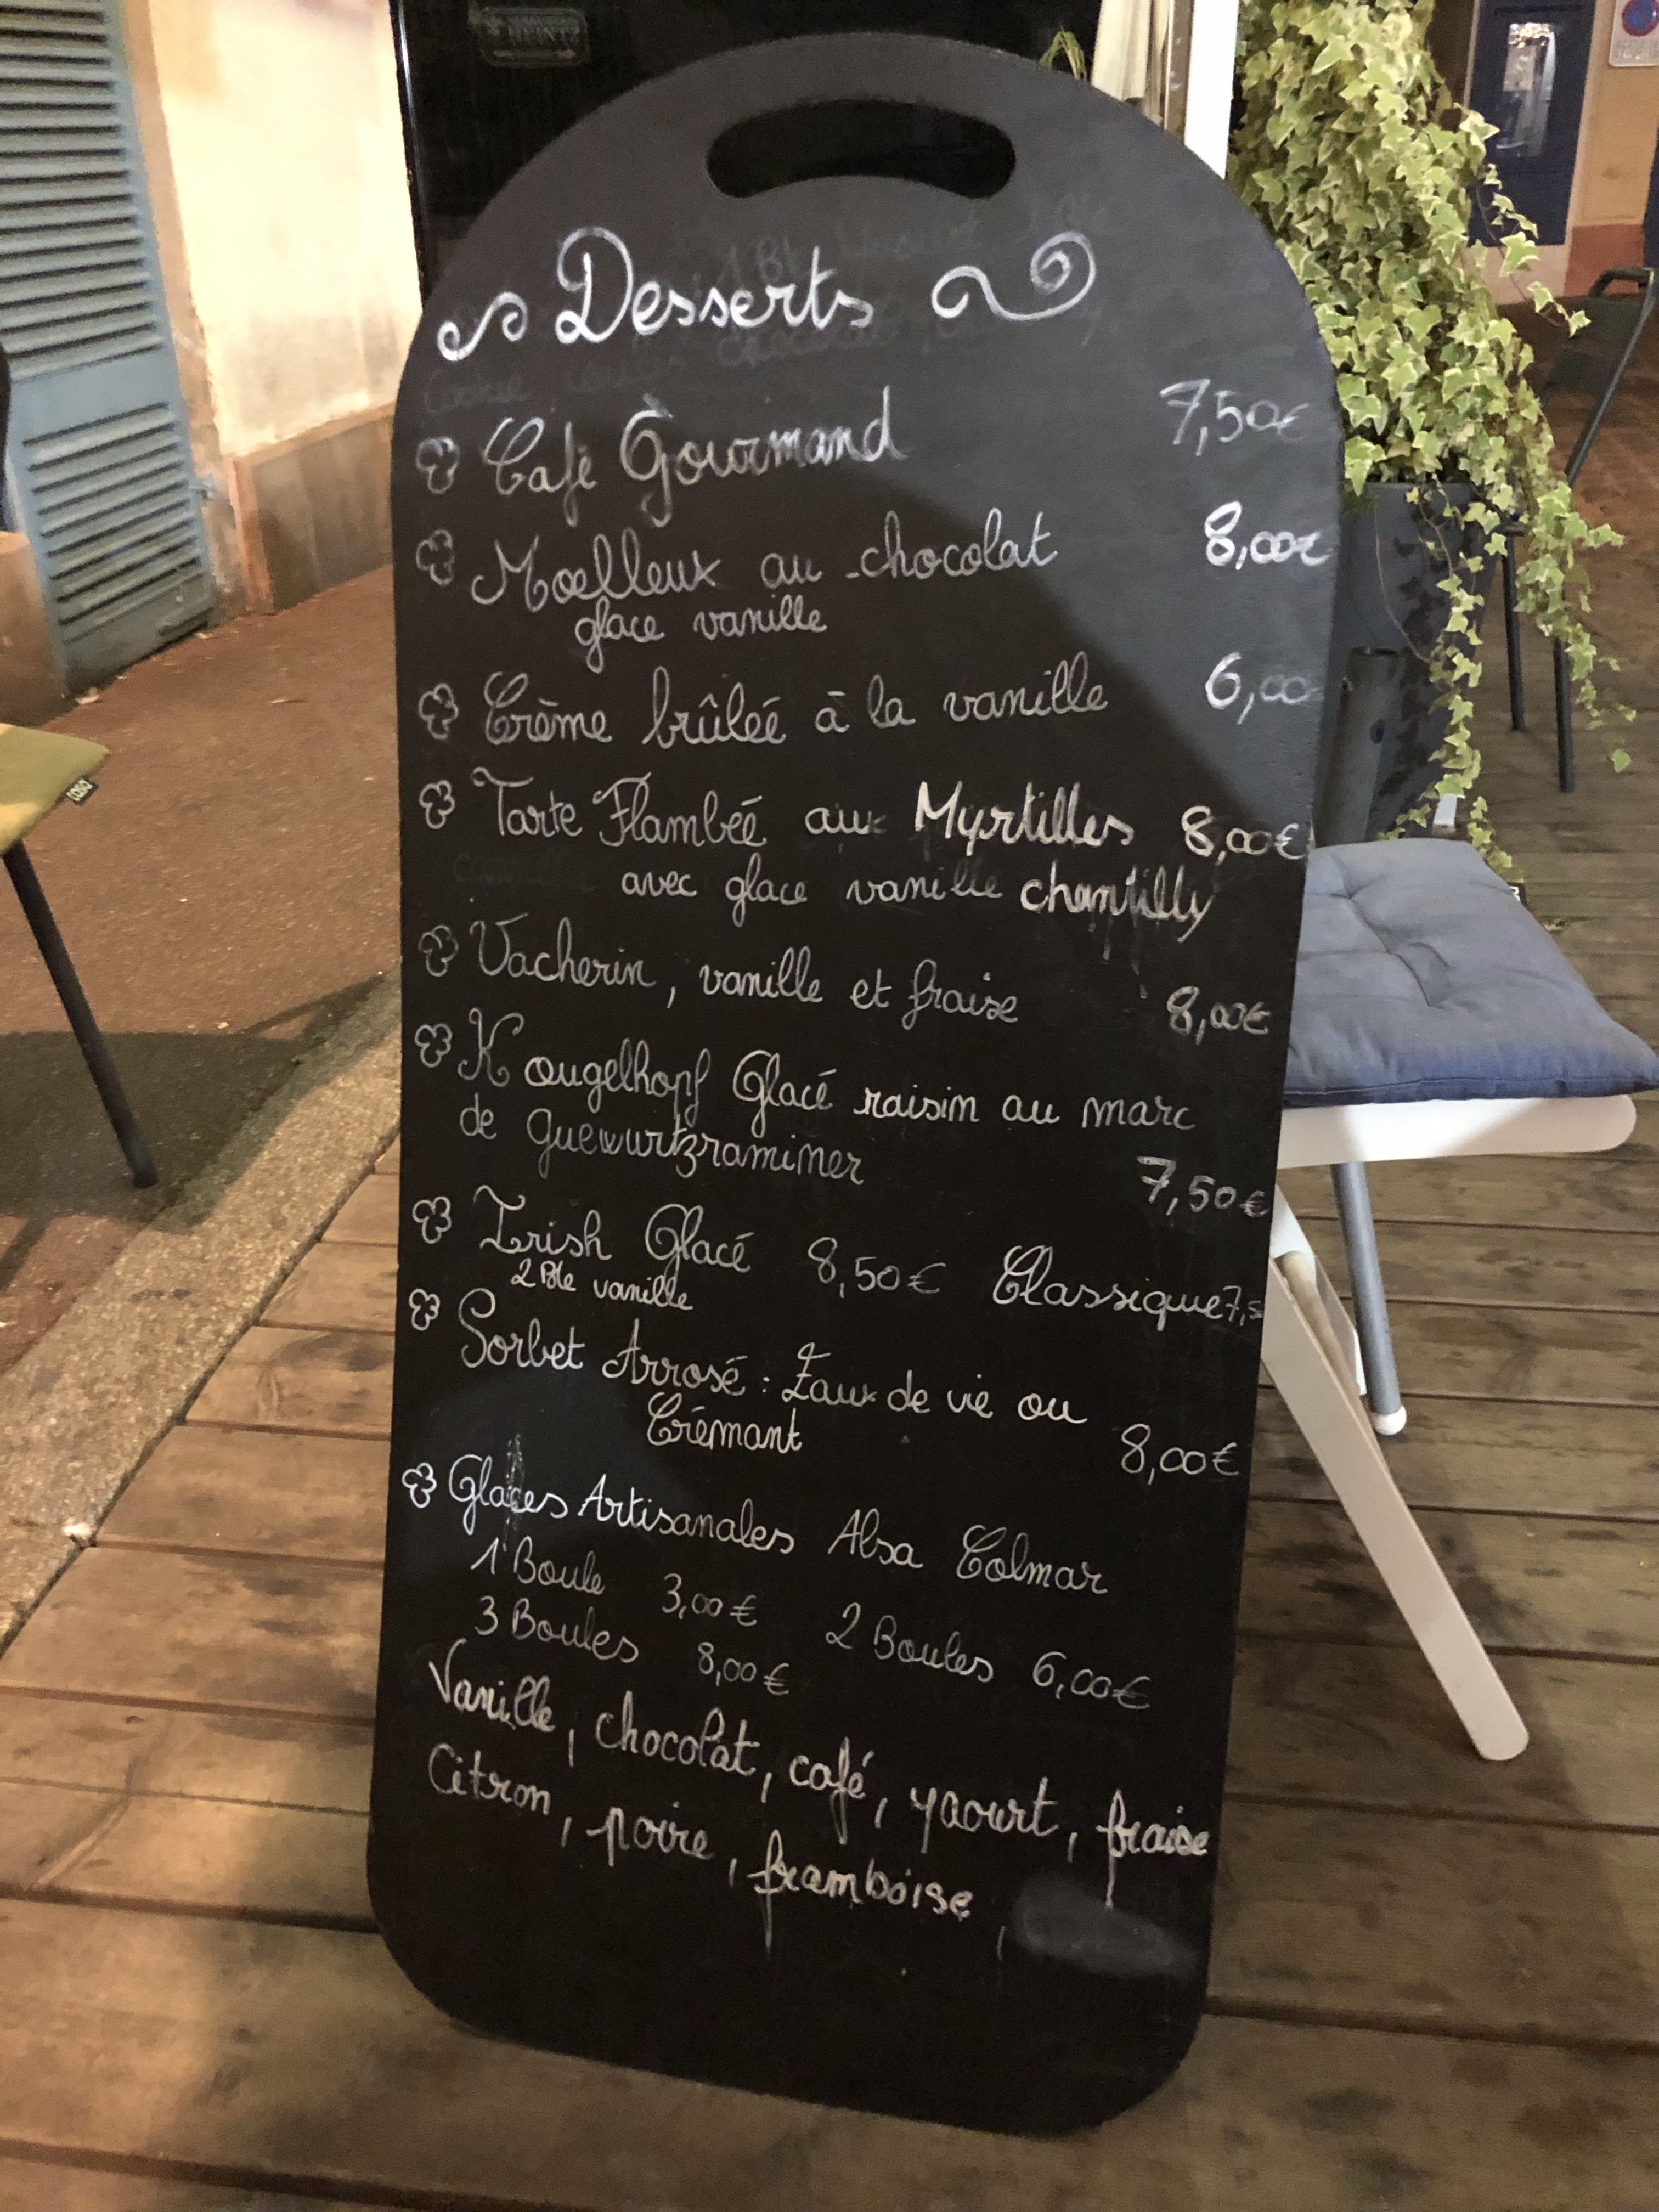 Desserts
Café Gourmand 7,50€
Moelleux au chocolat 8,00€
glace vanille
Crème brûlée à la vanille 6,00
Tarte Flambée aux Myrtilles 8,00€
avec glace vanille chantilly
Vacherin, vanille et fraise 8,00€
Kougelhopf Glacé raisin au marc
de Guewurtzraminer 7,50€
Irish Glacé 8,50€ Classique 7,5
2 Ble vanille
Sorbet Arrosé : Eaux de vie ou
Crémant 8,00€
Glaces Artisanales Alsa Colmar
1 Boule 3,00€ 2 Boules 6,00€
3 Boules 8,00€
Vanille, chocolat, café, yaourt, fraise
Citron, poire, framboise,